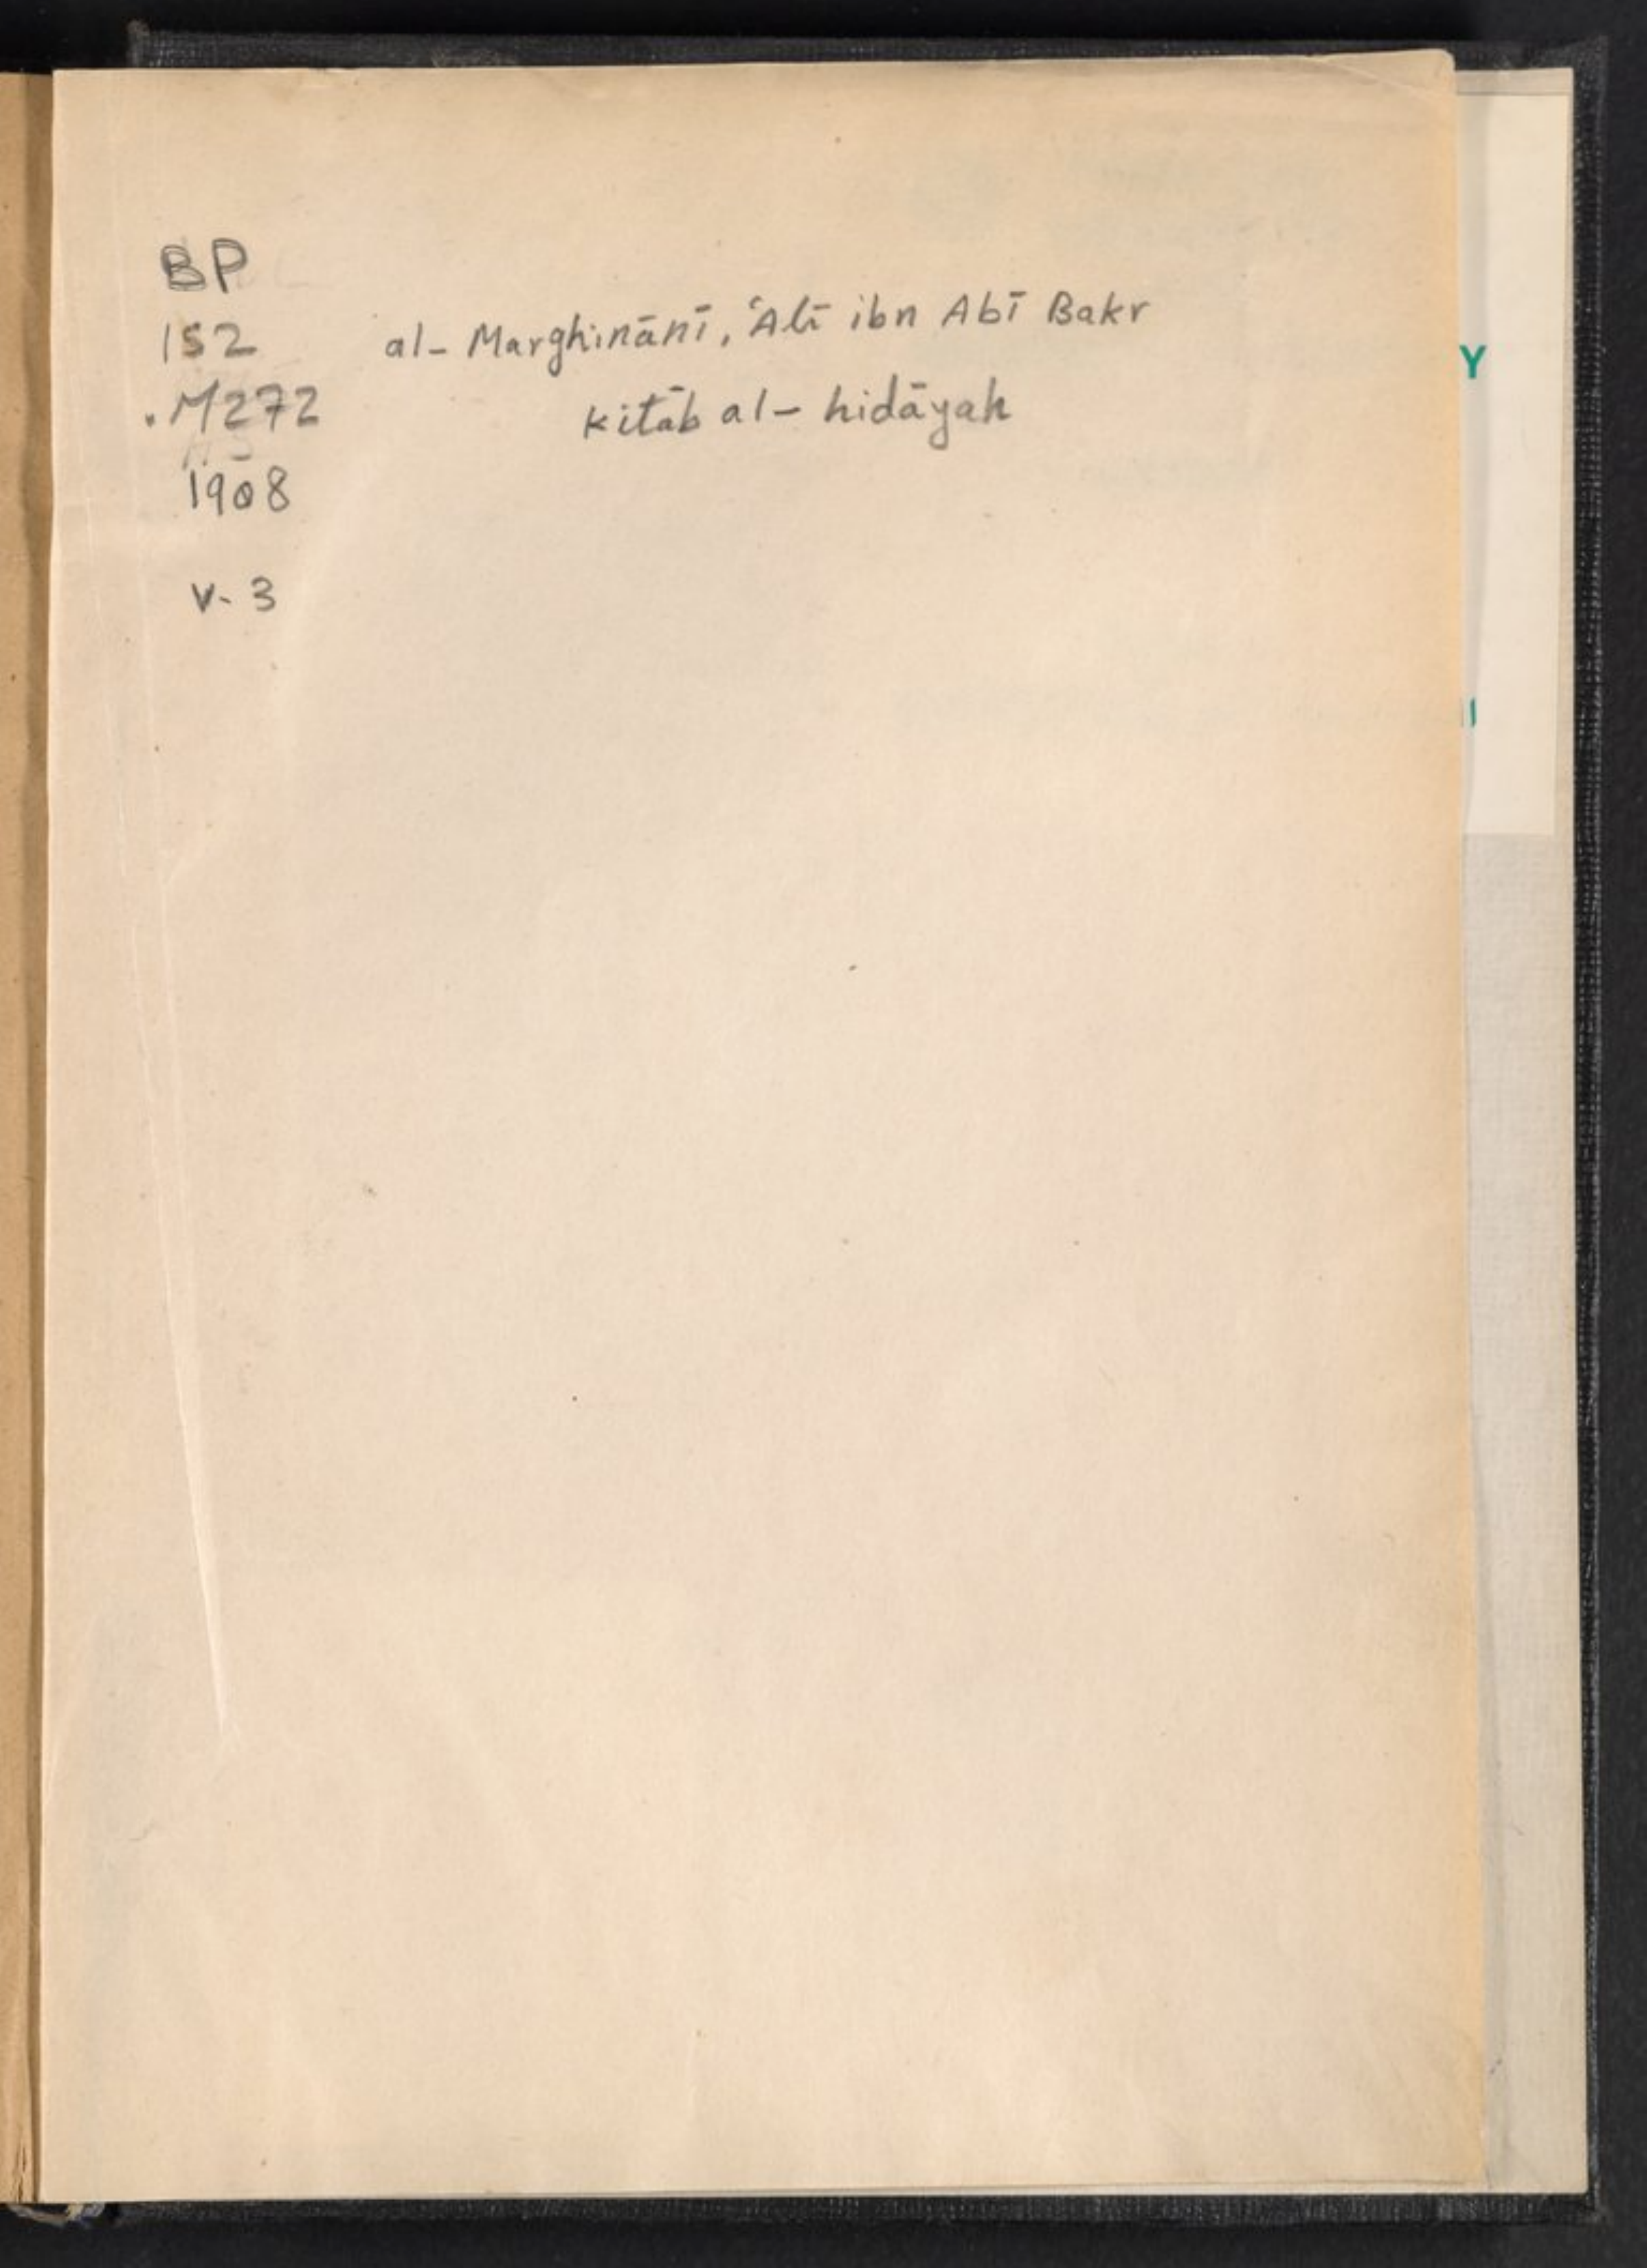 BP
152
.M272
1908
v. 3
al-Marghinānī, ʿAlī ibn Abī Bakr
kitāb al-hidāyah
Y